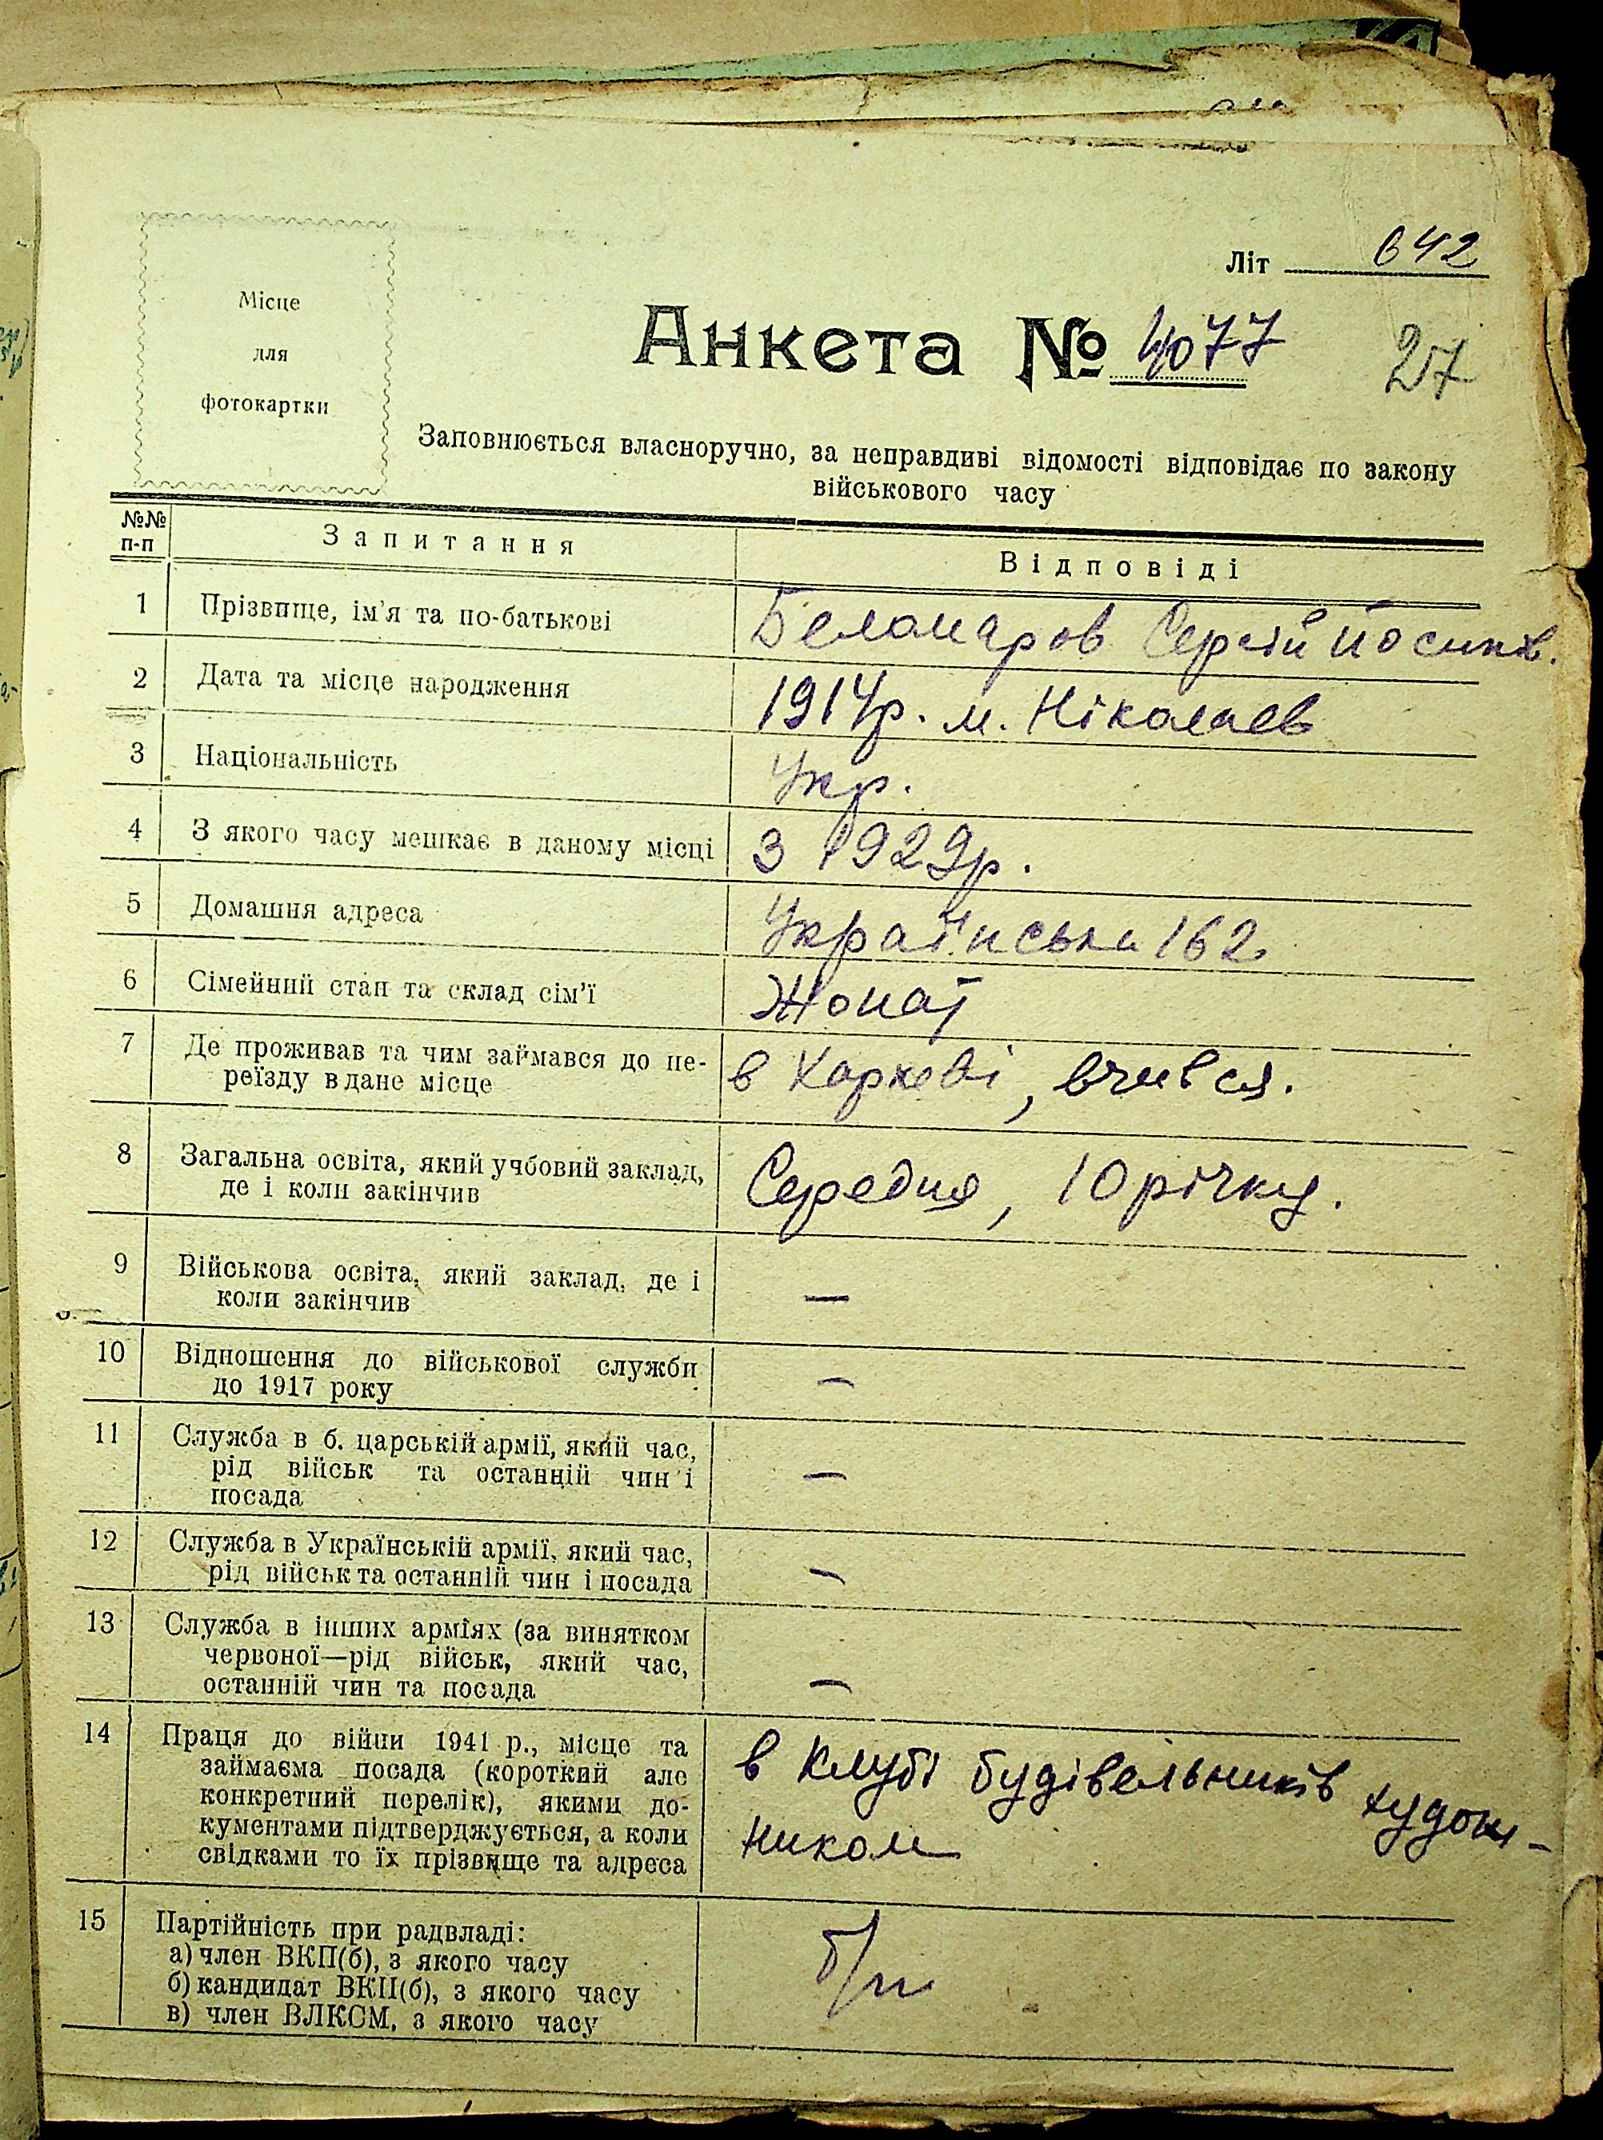 Літ 642
Місце
для
фотокартки
Анкета № 4077
27
Заповнюється власноручно, за неправдиві відомості відповідає по закону
військового часу
№№ п-п Запитання Відповіді
1 Прізвище, ім'я та по-батькові Сергій Йосипів.
2 Дата та місце народження 1914р. м. Ніколаев
3 Національність Укр.
4 З якого часу мешкає в даному місці з 1929р.
5 Домашня адреса Українська 162
6 Сімейний стан та склад сім'ї Жонат
7 Де проживав та чим займався до пе-
реїзду в дане місце в Харкові, вчився.
8 Загальна освіта, який учбовий заклад,
де і коли закінчив Середня, 10річку.
9 Військова освіта, який заклад, де і
коли закінчив —
10 Відношення до військової служби
до 1917 року —
11 Служба в б. царській армії, який час,
рід військ та останній чин і
посада —
12 Служба в Українській армії, який час,
рід військ та останній чин і посада —
13 Служба в інших арміях (за винятком
червоної—рід військ, який час,
останній чин та посада —
14 Праця до війни 1941 р., місце та
займаєма посада (короткий але
конкретний перелік), якими до-
кументами підтверджується, а коли
свідками то їх прізвище та адреса
в клубі будівельників худож-
ником
15 Партійність при радвладі:
а) член ВКП(б), з якого часу
б) кандидат ВКП(б), з якого часу
в) член ВЛКСМ, з якого часу
б/п